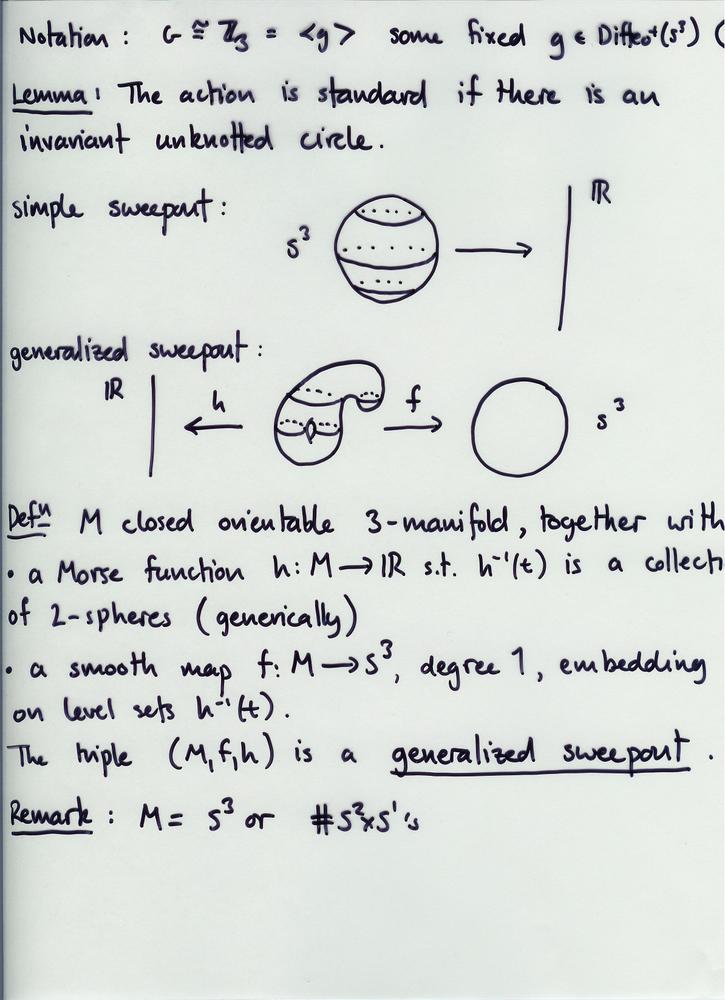 Notation : G ≅ ℤ₃ = <g> some fixed g ∈ Diffeo⁺(S³) (
Lemma : The action is standard if there is an
invariant unknotted circle.
simple sweepout :
S³ ℝ
generalized sweepout :
ℝ h f S³
Defⁿ M closed orientable 3-manifold, together with
• a Morse function h: M → ℝ s.t. h⁻¹(t) is a collect
of 2-spheres (generically)
• a smooth map f: M → S³, degree 1, embedding
on level sets h⁻¹(t).
The triple (M, f, h) is a generalized sweepout.
Remark : M = S³ or # S²×S¹'s